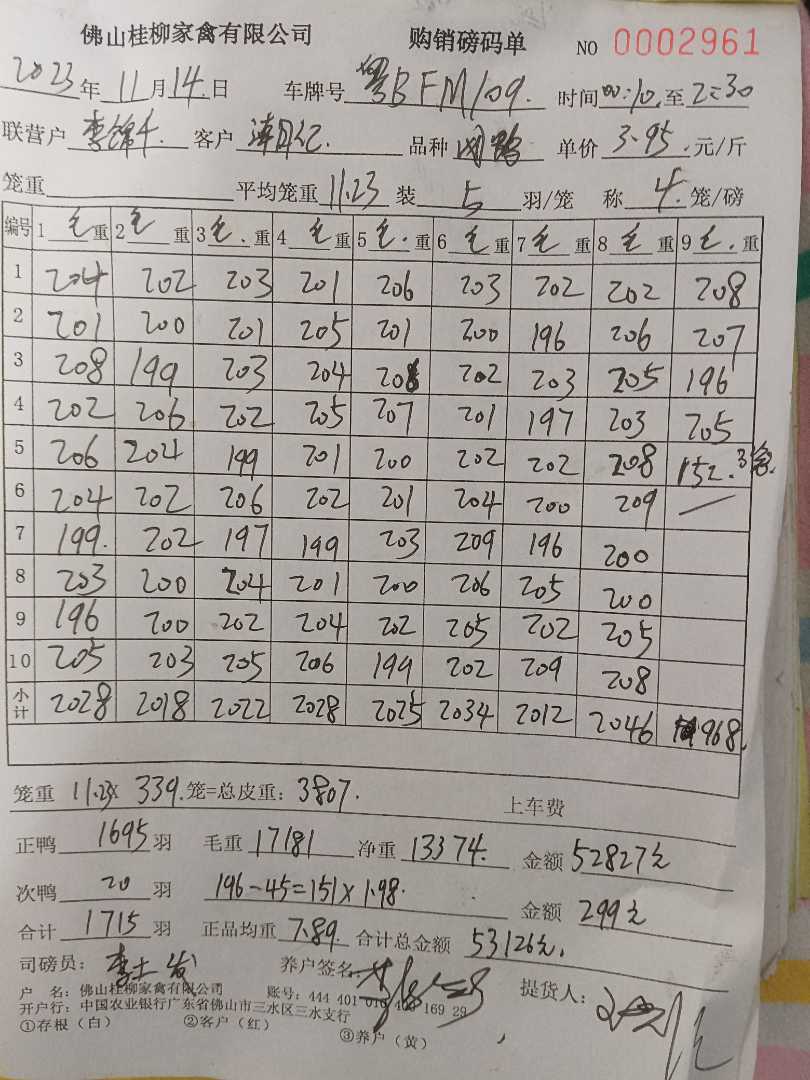 佛山桂柳家禽有限公司 购销磅码单 NO 0002961
2023年11月14日 车牌号 粤BFM109. 时间00:10至2:30
联营户 李锦 客户 品种 单价 3.95.元/斤
笼重 平均笼重 11.23 装 5 羽/笼 称 4. 笼/磅
编号 1毛重 2毛重 3毛.重 4毛重 5毛.重 6毛重 7毛重 8毛重 9毛.重
1 204 202 203 201 206 203 202 202 208
2 201 200 201 205 201 200 196 206 207
3 208 199 203 204 208 202 203 205 196
4 202 206 202 205 207 201 197 203 205
5 206 204 199 201 200 202 202 208 152.3笼
6 204 202 206 202 201 204 200 209 —
7 199. 202 197 199 203 209 196 200
8 203 200 204 201 200 206 205 200
9 196 200 202 204 202 205 202 205
10 205 203 205 206 199 202 209 208
小计 2028 2018 2022 2028 2025 2034 2012 2046 968.
笼重 11.23X 339.笼=总皮重：3807. 上车费
正鸭 1695 羽 毛重 17181 净重 13374. 金额 52827元
次鸭 20 羽 196-45=151X1.98. 金额 299元
合计 1715 羽 正品均重 7.89 合计总金额 53126元.
司磅员： 李土发 养户签名： 提货人：
户 名：佛山桂柳家禽有限公司 账号：444 401 010 400 169 29
开户行：中国农业银行广东省佛山市三水区三水支行
①存根（白） ②客户（红） ③养户（黄）